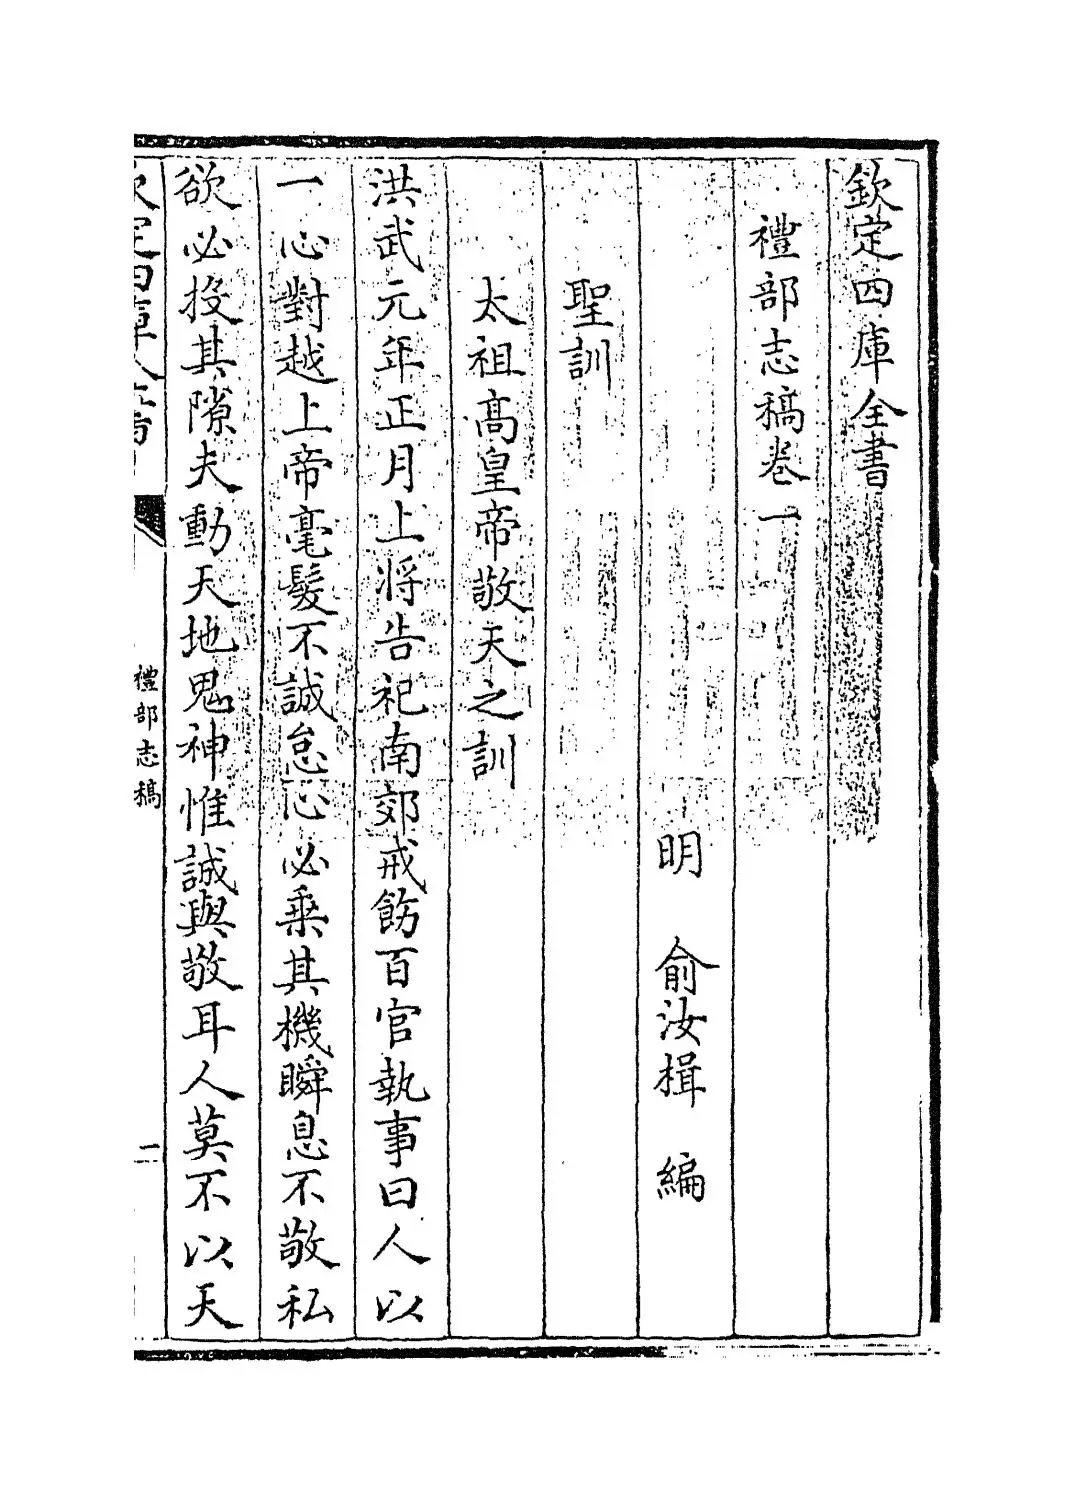 欽定四庫全書
禮部志稿卷一
明 俞汝楫 編
聖訓
太祖高皇帝敬天之訓
洪武元年正月上將告祀南郊戒飭百官執事曰人以
一心對越上帝毫髮不誠怠心必乗其機瞬息不敬私
欲必投其隙夫動天地鬼神惟誠與敬耳人莫不以天
欽定四庫全書
禮部志稿
一